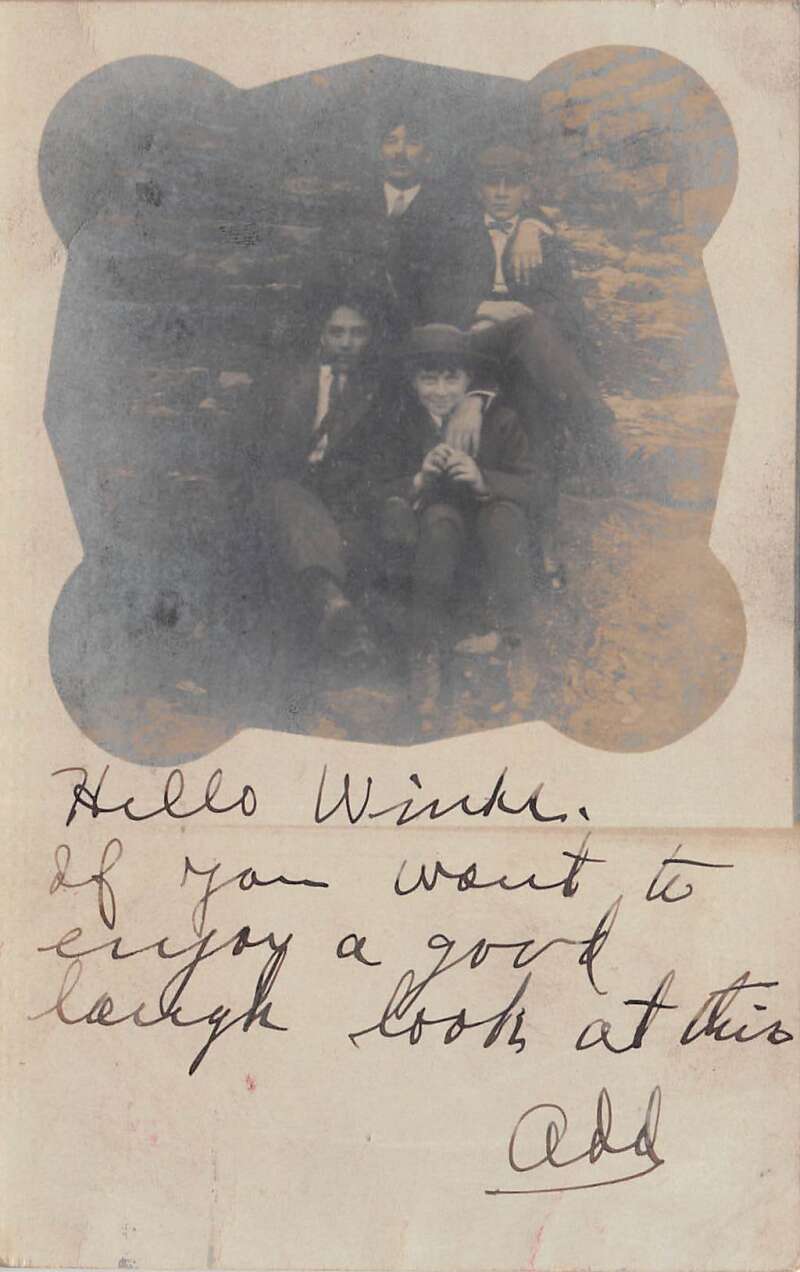 Hello Winks.
If you want to
enjoy a good
laugh look at this
Add